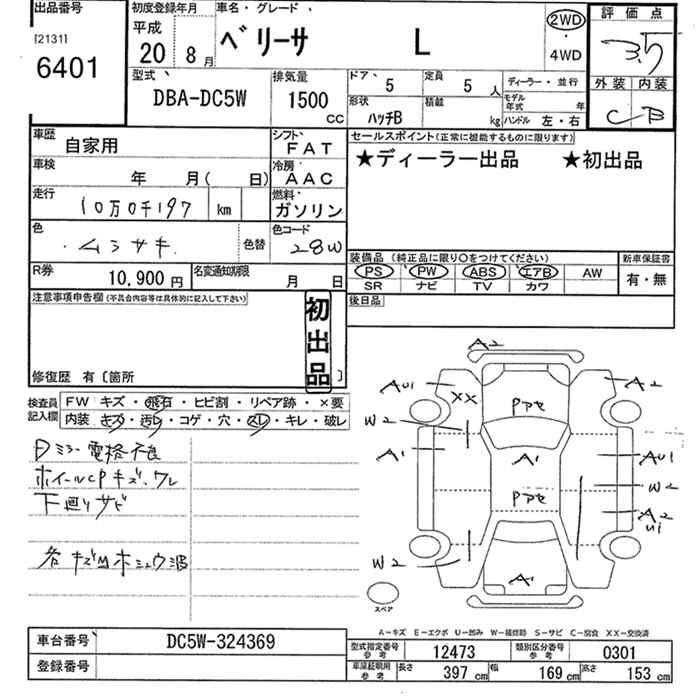 出品番号
[21311
6401
初度登録年月
平成
20 8月
車名・グレード
ベリーサ L
2WD
・
4WD
評価点
3.5
外装 内装
C B
型式
DBA-DC5W
排気量
1500
CC
ドア
5
定員
5 人
形状
ハッチB
積載
kg
ディーラー・並行
モデル年式 年
ハンドル 左・右
車歴
自家用
シフト
FAT
車検
年 月( 日)
冷房
AAC
走行
10万0千197 km
燃料
ガソリン
色
ムラサキ
色替
色コード
28W
R券
10,900円
名変通知期限
月 日
セールスポイント(正常に機能するものに限ります)
★ディーラー出品 ★初出品
装備品(純正品に限り○をつけてください)
PS PW ABS エアB AW
SR ナビ TV カワ
新車保証書
有・無
後日品
注意事項申告欄(不具合内容等は具体的に記入して下さい)
初出品
修復歴 有〔箇所 〕
検査員記入欄
FW キズ・飛石・ヒビ割・リペア跡・×要
内装・キズ・汚レ・コゲ・穴・スレ・キレ・破レ
Dミラー電格不良
ホイールCPキズ、ワレ
下廻りサビ
各キズM
A2
AU1
XX
W2
A1
W2
アアセ
A1
アアセ
A1
A2
AU1
W2
A2
U1
スペア
A−キズ E−エクボ U−凹み W−補修跡 S−サビ C−腐食 XX−交換済
車台番号
DC5W-324369
登録番号
型式指定番号
参考
12473
類別区分番号
参考
0301
車庫証明用
参考
長さ
397 cm
幅
169 cm
高さ
153 cm